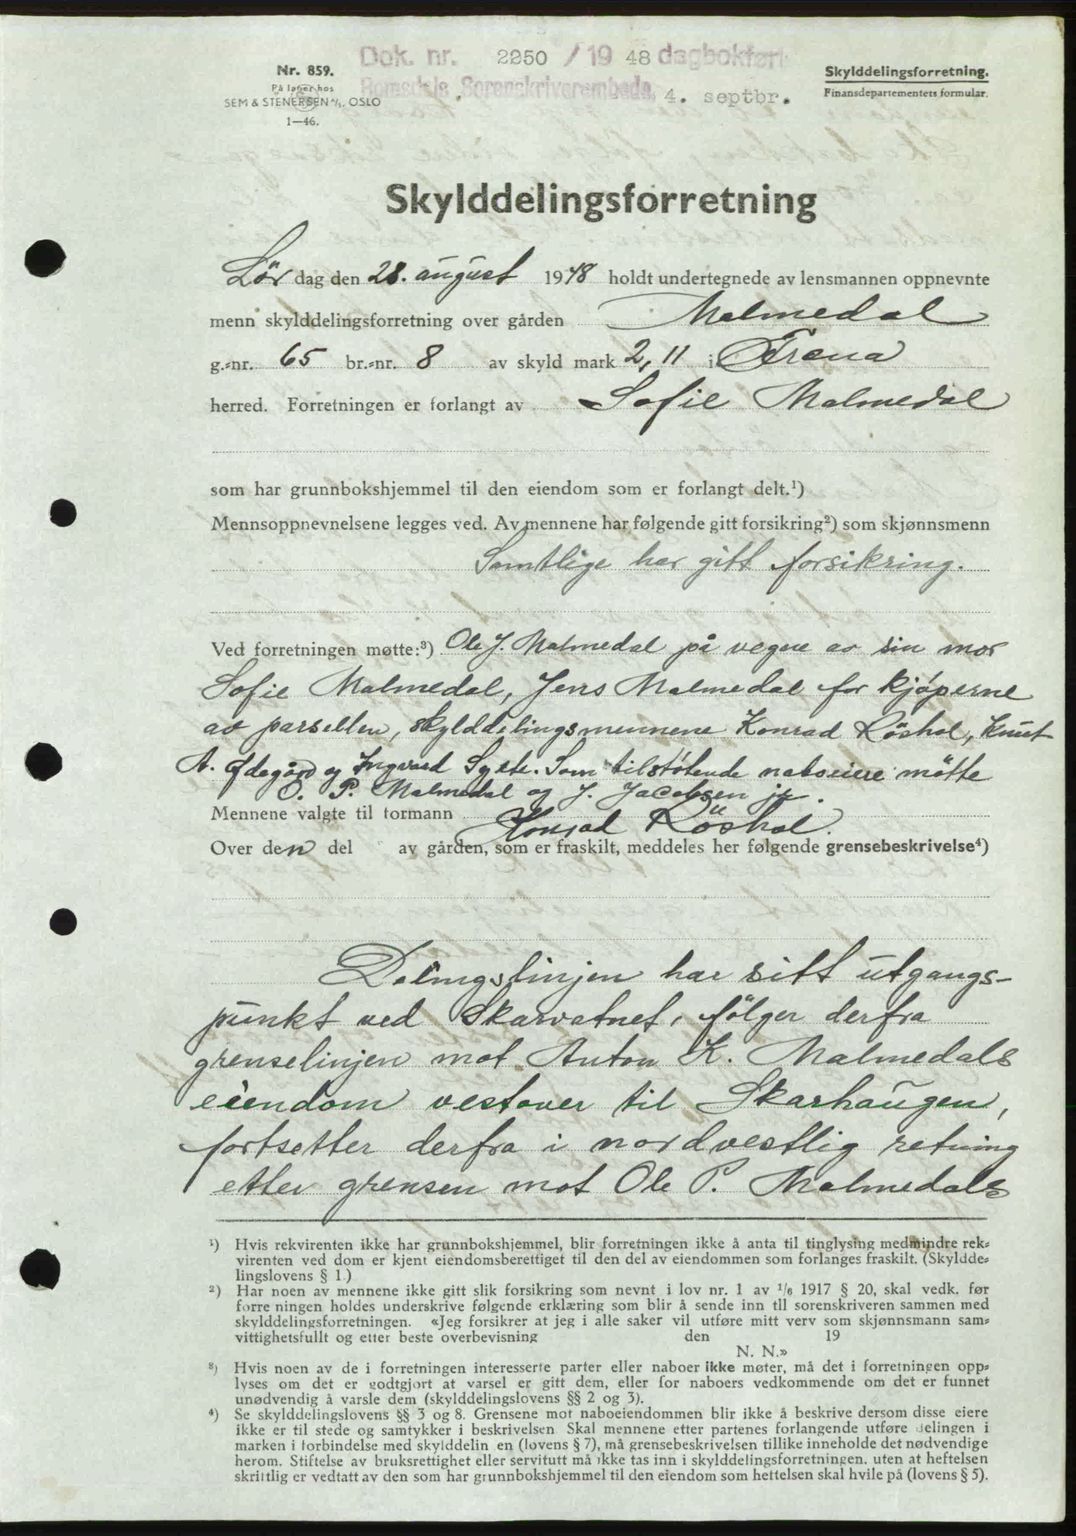 Dok. nr. 2250 / 19 48 dagbokført
Romsdals Sorenskriverembede, 4. septbr.
Nr. 859.
På lager hos
SEM & STENERSEN A/S. OSLO
1—46.
Skylddelingsforretning.
Finansdepartementets formular.
Skylddelingsforretning
Lør dag den 28. august 1948 holdt undertegnede av lensmannen oppnevnte
menn skylddelingsforretning over gården Malmedal
g.-nr. 65 br.-nr. 8 av skyld mark 2,11 i Fræna
herred. Forretningen er forlangt av Sofie Malmedal
som har grunnbokshjemmel til den eiendom som er forlangt delt.¹)
Mennsoppnevnelsene legges ved. Av mennene har følgende gitt forsikring²) som skjønnsmenn
Samtlige har gitt forsikring.
Ved forretningen møtte:³) Ole J. Malmedal på vegne av sin mor
Sofie Malmedal, Jens Malmedal for kjøperne
av parsellen, skylddelingsmennene Konrad Röshol, Knut
A. Ødegård og Ingvard Syste. Som tilstøtende naboeiere møtte
O. P. Malmedal og J. Jacobsen jr.
Mennene valgte til formann Konrad Röshol.
Over den del av gården, som er fraskilt, meddeles her følgende grensebeskrivelse⁴)
Delingslinjen har sitt utgangs-
punkt ved Skarvatnet, følger derfra
grenselinjen mot Anton K. Malmedals
eiendom vestover til Skarhaugen,
fortsetter derfra i nordvestlig retning
etter grensen mot Ole P. Malmedals
¹) Hvis rekvirenten ikke har grunnbokshjemmel, blir forretningen ikke å anta til tinglysing medmindre rek-
virenten ved dom er kjent eiendomsberettiget til den del av eiendommen som forlanges fraskilt. (Skyldde-
lingslovens § 1.)
²) Har noen av mennene ikke gitt slik forsikring som nevnt i lov nr. 1 av 1/6 1917 § 20, skal vedk. før
forre ningen holdes underskrive følgende erklæring som blir å sende inn til sorenskriveren sammen med
skylddelingsforretningen. «Jeg forsikrer at jeg i alle saker vil utføre mitt verv som skjønnsmann sam-
vittighetsfullt og etter beste overbevisning den 19
N. N.»
³) Hvis noen av de i forretningen interesserte parter eller naboer ikke møter, må det i forretningen opp-
lyses om det er godtgjort at varsel er gitt dem, eller for naboers vedkommende om det er funnet
unødvendig å varsle dem (skylddelingslovens §§ 2 og 3).
⁴) Se skylddelingslovens §§ 3 og 8. Grensene mot naboeiendommen blir ikke å beskrive dersom disse eiere
ikke er til stede og samtykker i beskrivelsen Skal mennene etter partenes forlangende utføre delingen i
marken i forbindelse med skylddelin en (lovens § 7), må grensebeskrivelsen tillike inneholde det nødvendige
herom. Stiftelse av bruksrettighet eller servitutt må ikke tas inn i skylddelingsforretningen. uten at heftelsen
skriftlig er vedtatt av den som har grunnbokshjemmel til den eiendom som heftelsen skal hvile på (lovens § 5).